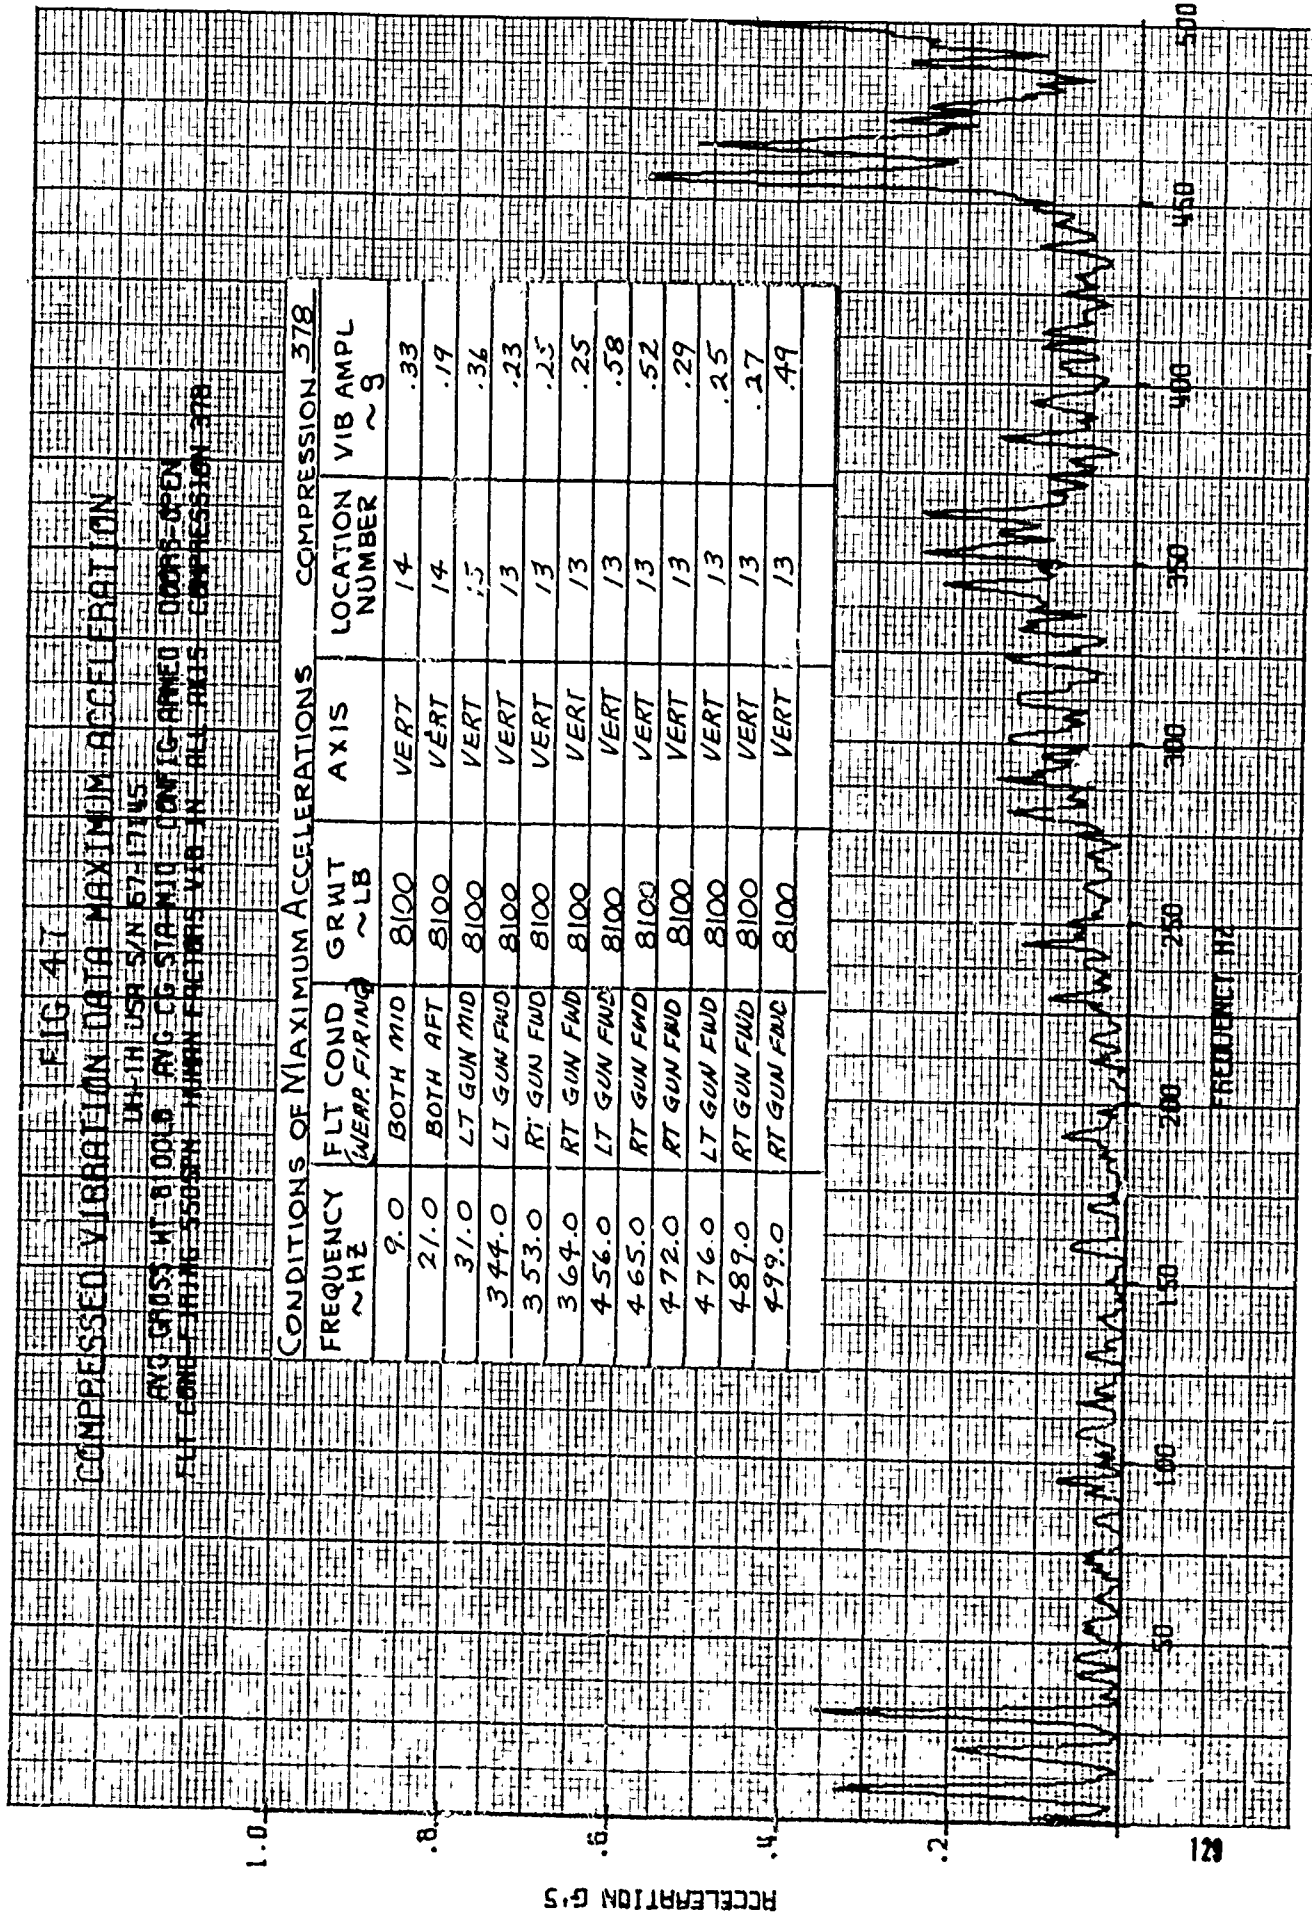 FIG 47
COMPRESSED VIBRATION DATA MAXIMUM ACCELERATION
UH-1H USA S/N 67-17145
AVG GROSS WT 8100LB AVG CG STA-MID CONFIG-ARMED DOORS-OPEN
FLT COND-FIRING HUMAN FACTORS VIB IN ALL AXIS COMPRESSION 378
CONDITIONS OF MAXIMUM ACCELERATIONS COMPRESSION 378
FREQUENCY ~HZ FLT COND (WEAP. FIRING) GRWT ~LB AXIS LOCATION NUMBER VIB AMPL ~g
9.0 BOTH MID 8100 VERT 14 .33
21.0 BOTH AFT 8100 VERT 14 .19
31.0 LT GUN MID 8100 VERT .36
344.0 LT GUN FWD 8100 VERT 13 .23
353.0 RT GUN FWD 8100 VERT 13 .25
364.0 RT GUN FWD 8100 VERT 13 .25
456.0 LT GUN FWD 8100 VERT 13 .58
465.0 RT GUN FWD 8100 VERT 13 .52
472.0 RT GUN FWD 8100 VERT 13 .29
476.0 LT GUN FWD 8100 VERT 13 .25
489.0 RT GUN FWD 8100 VERT 13 .27
499.0 RT GUN FWD 8100 VERT 13 .49
ACCELERATION G'S
1.0
.8
.6
.4
.2
50 100 150 200 250 300 350 400 450 500
FREQUENCY HZ
129